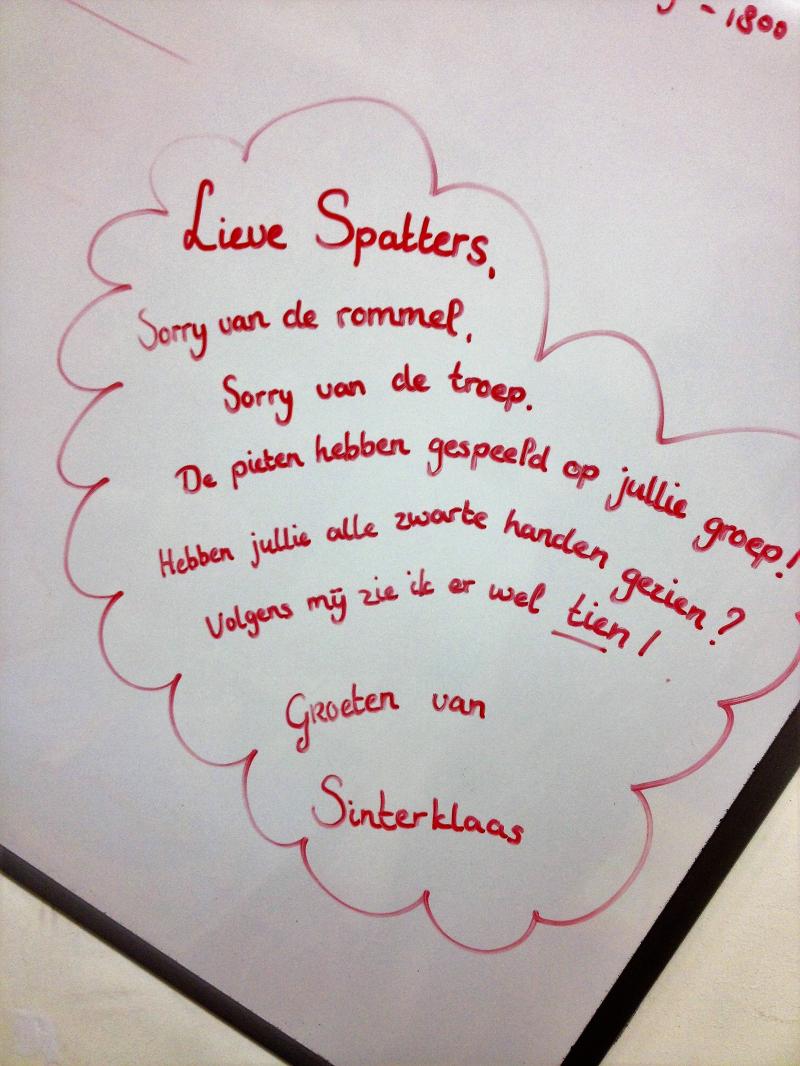 - 1800
Lieve Spatters,
Sorry van de rommel,
Sorry van de troep.
De pieten hebben gespeeld op jullie groep!
Hebben jullie alle zwarte handen gezien?
Volgens mij zie ik er wel tien!
Groeten van
Sinterklaas